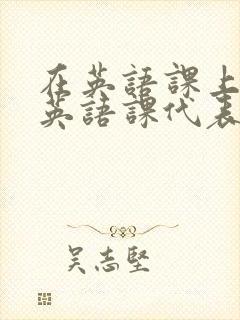 在英語課上
英語課代表
吴志堅